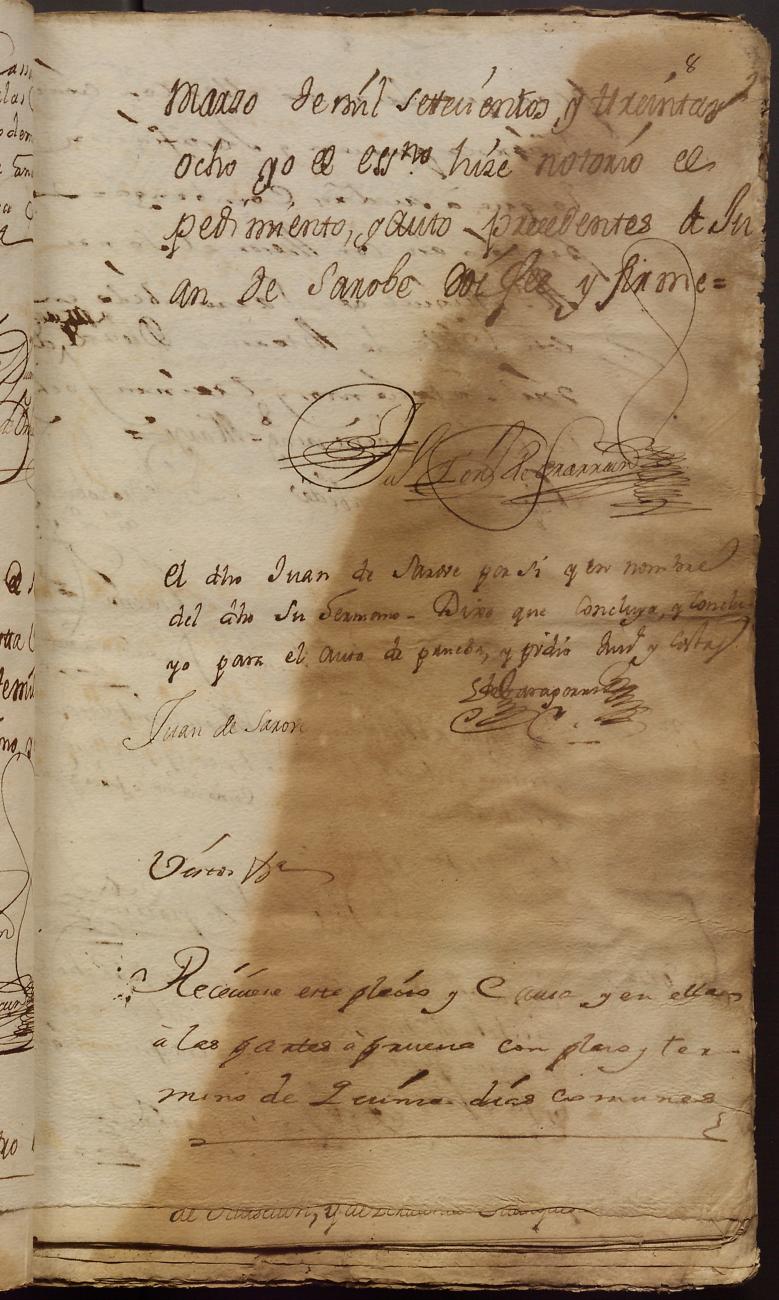 8
Marzo de mil setecientos, y treinta y
ocho yo el essno. hize notorio el
pedimiento, y auto precedentes a Ju
an de Sarobe doi fee y firme=
de Ararrain
el dho Juan de Sarove por si y en nombre
del dho Su hermano - Dixo que Concluya, y Conclu
yo para el auto de prueba, y pidio Justª y Costas
Juan de Sarove
Vistos
Recivese este pleito y Causa y en ella
à las partes à prueva con plazo y ter-
mino de Quinze dias comunes